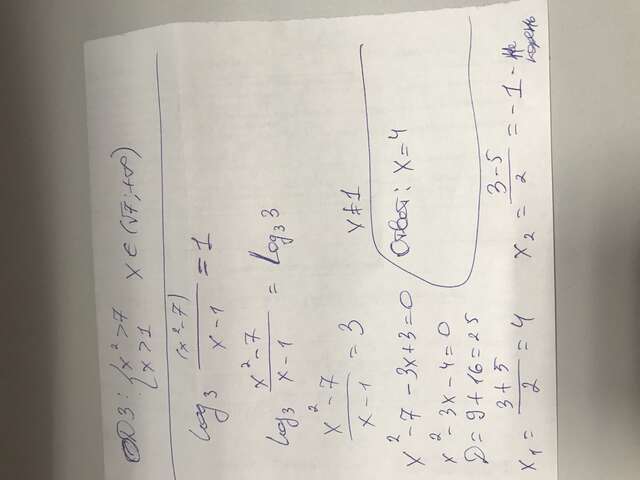 ОДЗ: { x² > 7
{ x > 1
x ∈ (√7; +∞)
log₃ (x²-7)/(x-1) = 1
log₃ (x²-7)/(x-1) = log₃ 3
(x²-7)/(x-1) = 3
x ≠ 1
x²-7-3x+3=0
x²-3x-4=0
D=9+16=25
x₁ = (3+5)/2 = 4
x₂ = (3-5)/2 = -1 - не корень
Ответ: x=4